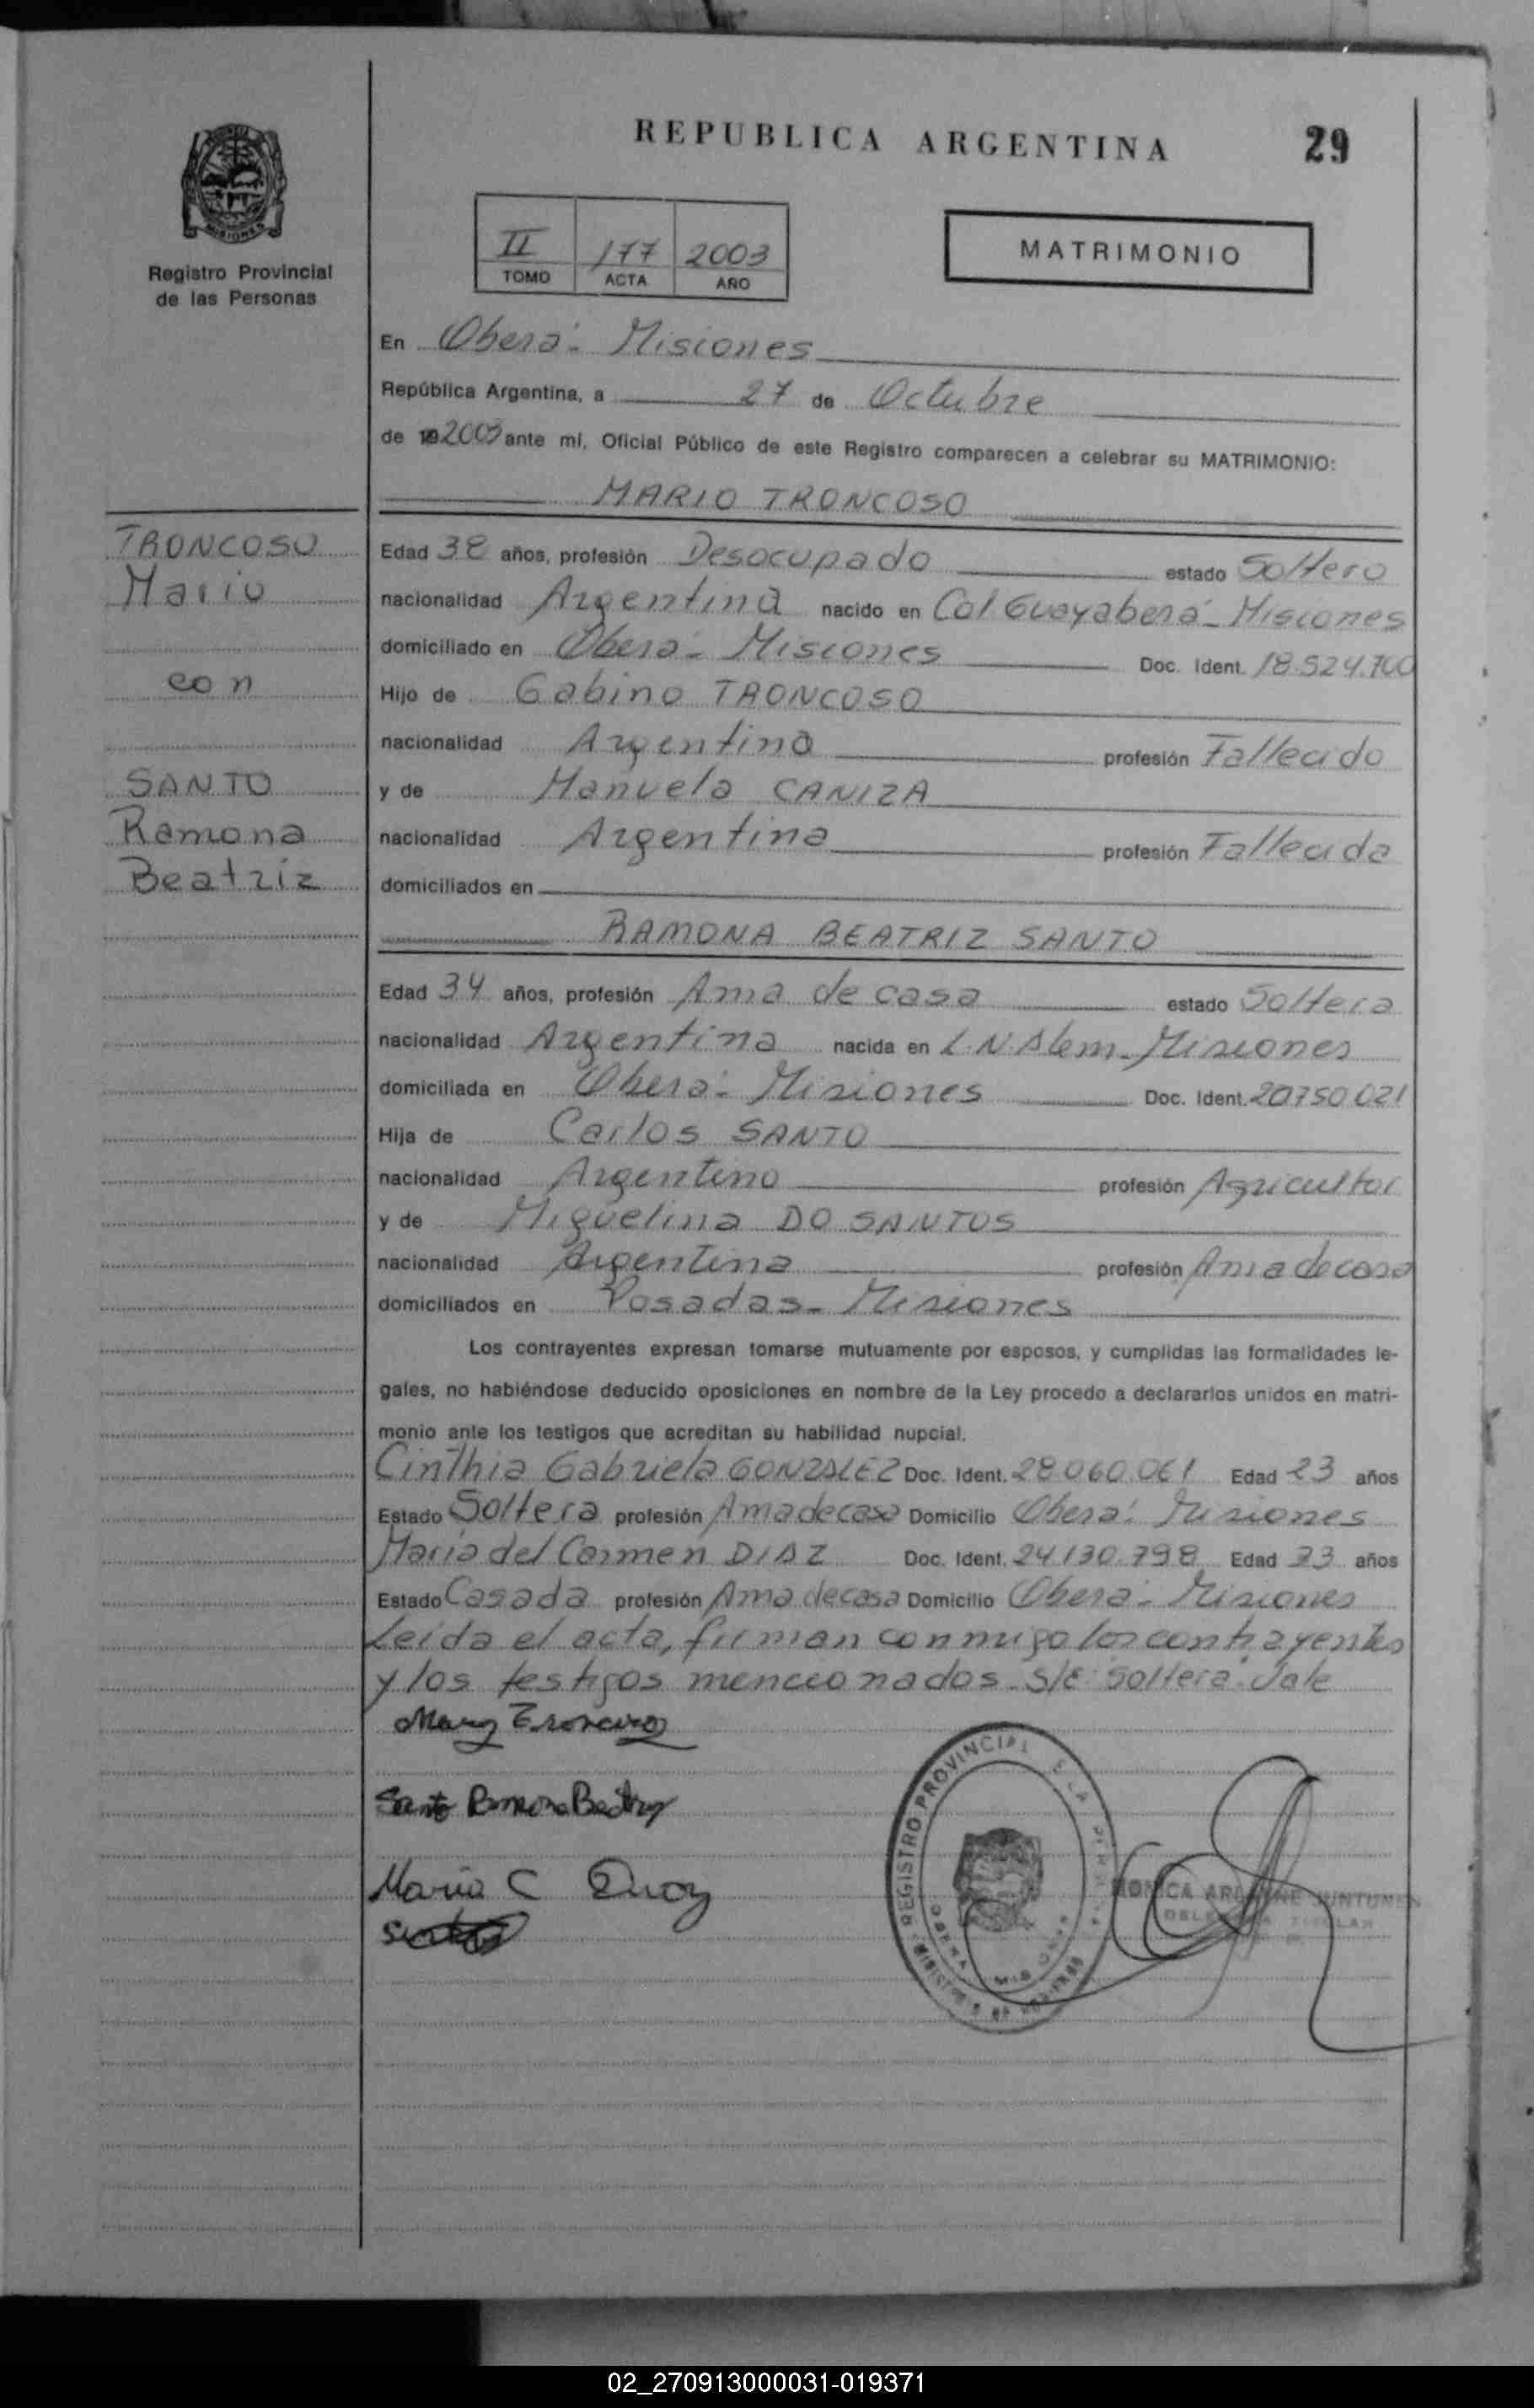 REPUBLICA ARGENTINA
29
Registro Provincial
de las Personas
MISIONES
II 177 2003
TOMO ACTA AÑO
MATRIMONIO
En Oberá - Misiones
República Argentina, a 27 de Octubre
de 19 2003 ante mí, Oficial Público de este Registro comparecen a celebrar su MATRIMONIO:
MARIO TRONCOSO
TRONCOSO
Mario
con
SANTO
Ramona
Beatriz
Edad 38 años, profesión Desocupado estado Soltero
nacionalidad Argentina nacido en Col Guayaberá - Misiones
domiciliado en Oberá - Misiones Doc. Ident. 18.524.700
Hijo de Gabino TRONCOSO
nacionalidad Argentina profesión Fallecido
y de Manuela CANIZA
nacionalidad Argentina profesión Fallecida
domiciliados en
RAMONA BEATRIZ SANTO
Edad 34 años, profesión Ama de casa estado Soltera
nacionalidad Argentina nacida en L.N. Alem - Misiones
domiciliada en Oberá - Misiones Doc. Ident. 20750.021
Hija de Carlos SANTO
nacionalidad Argentino profesión Agricultor
y de Miguelina DO SANTOS
nacionalidad Argentina profesión Ama de casa
domiciliados en Posadas - Misiones
Los contrayentes expresan tomarse mutuamente por esposos, y cumplidas las formalidades le-
gales, no habiéndose deducido oposiciones en nombre de la Ley procedo a declararlos unidos en matri-
monio ante los testigos que acreditan su habilidad nupcial.
Cinthia Gabriela GONZALEZ Doc. Ident. 28.060.061 Edad 23 años
Estado Soltera profesión Ama de casa Domicilio Oberá - Misiones
Maria del Carmen DIAZ Doc. Ident. 24.130.798 Edad 33 años
Estado Casada profesión Ama de casa Domicilio Oberá - Misiones
Leída el acta, firman conmigo los contrayentes
y los testigos mencionados. S/E: Soltera. Vale
Santo Ramona Beatriz
Maria C
REGISTRO PROVINCIAL DE LAS PERSONAS
02_270913000031-019371